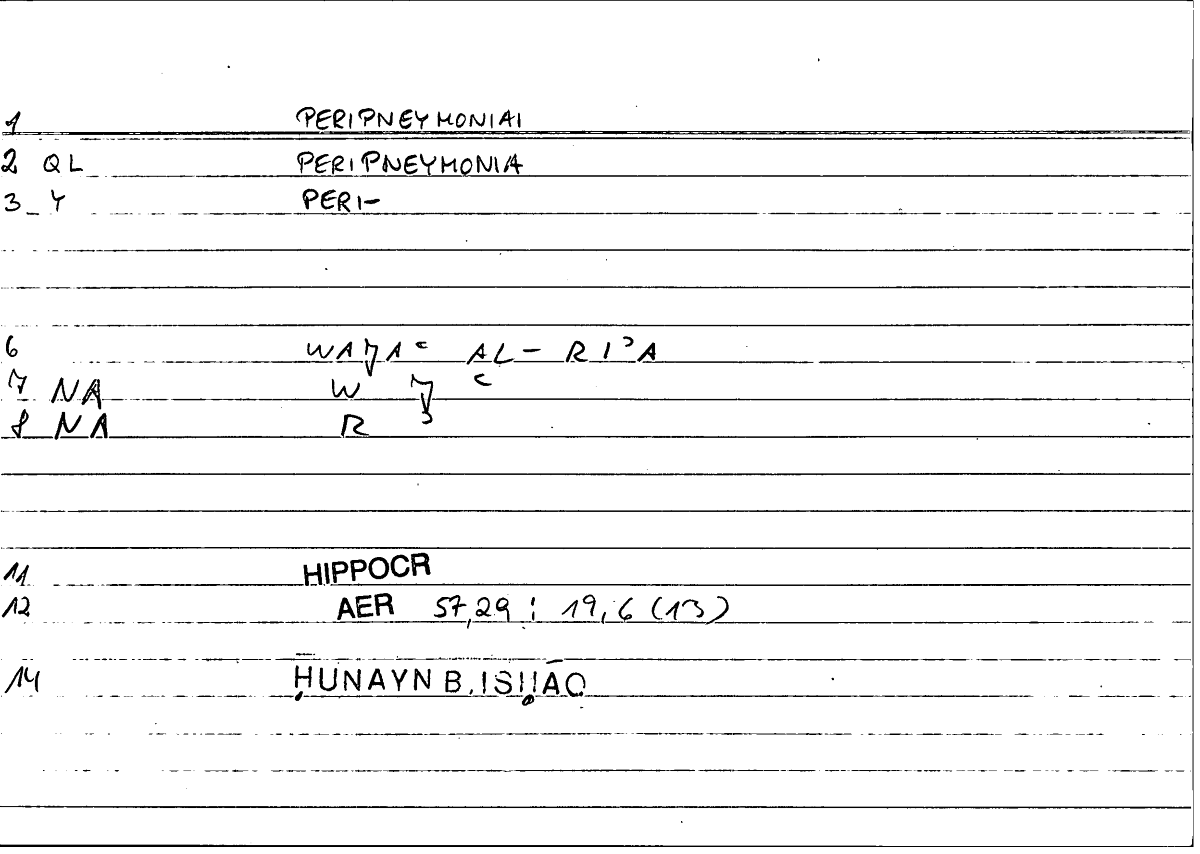 1 PERIPNEYMONIAI
2 QL PERIPNEYMONIA
3 Y PERI-
6 WAǦAʿ AL-RIʾA
7 NA W Ǧ ʿ
8 NA R ʾ
11 HIPPOCR
12 AER 57,29 : 19,6 (13)
14 ḤUNAYN B. ISḤĀQ